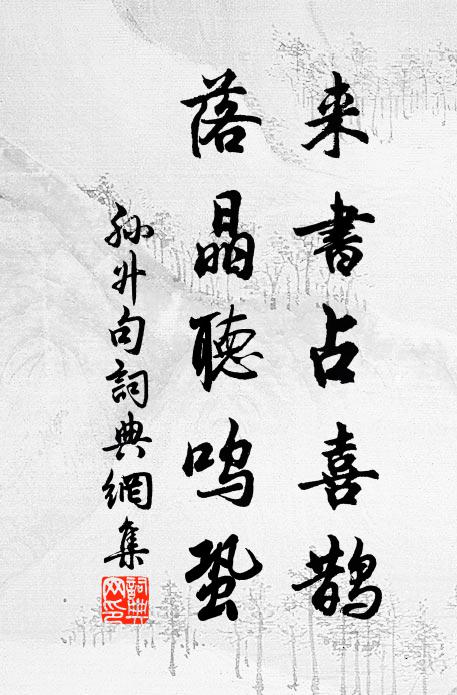 来書占喜鵲
落晶聴鳴蛩
孫升句詞典網集